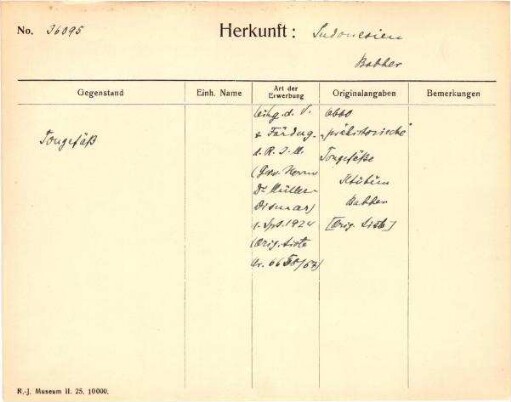 No. 36095
Herkunft: Indonesien
Babber
Gegenstand
Einh. Name
Art der Erwerbung
Originalangaben
Bemerkungen
Tongefäß
d. V.
z. Förderg.
d. R. J. M.
(Grv. Herrn
Dr Müller-
Wismar)
1. Spt. 1924
(Orig. Liste
Nr. 66
6660
„prähistorische"
Tongefäße
Babber
[Orig. Liste]
R.-J. Museum II. 25. 10000.